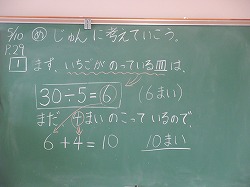 5/10 め じゅんに考えていこう。
P.29
1 まず、いちごがのっている皿は、
30÷5=6 (6まい)
まだ 4まいのこっているので、
6+4=10 10まい